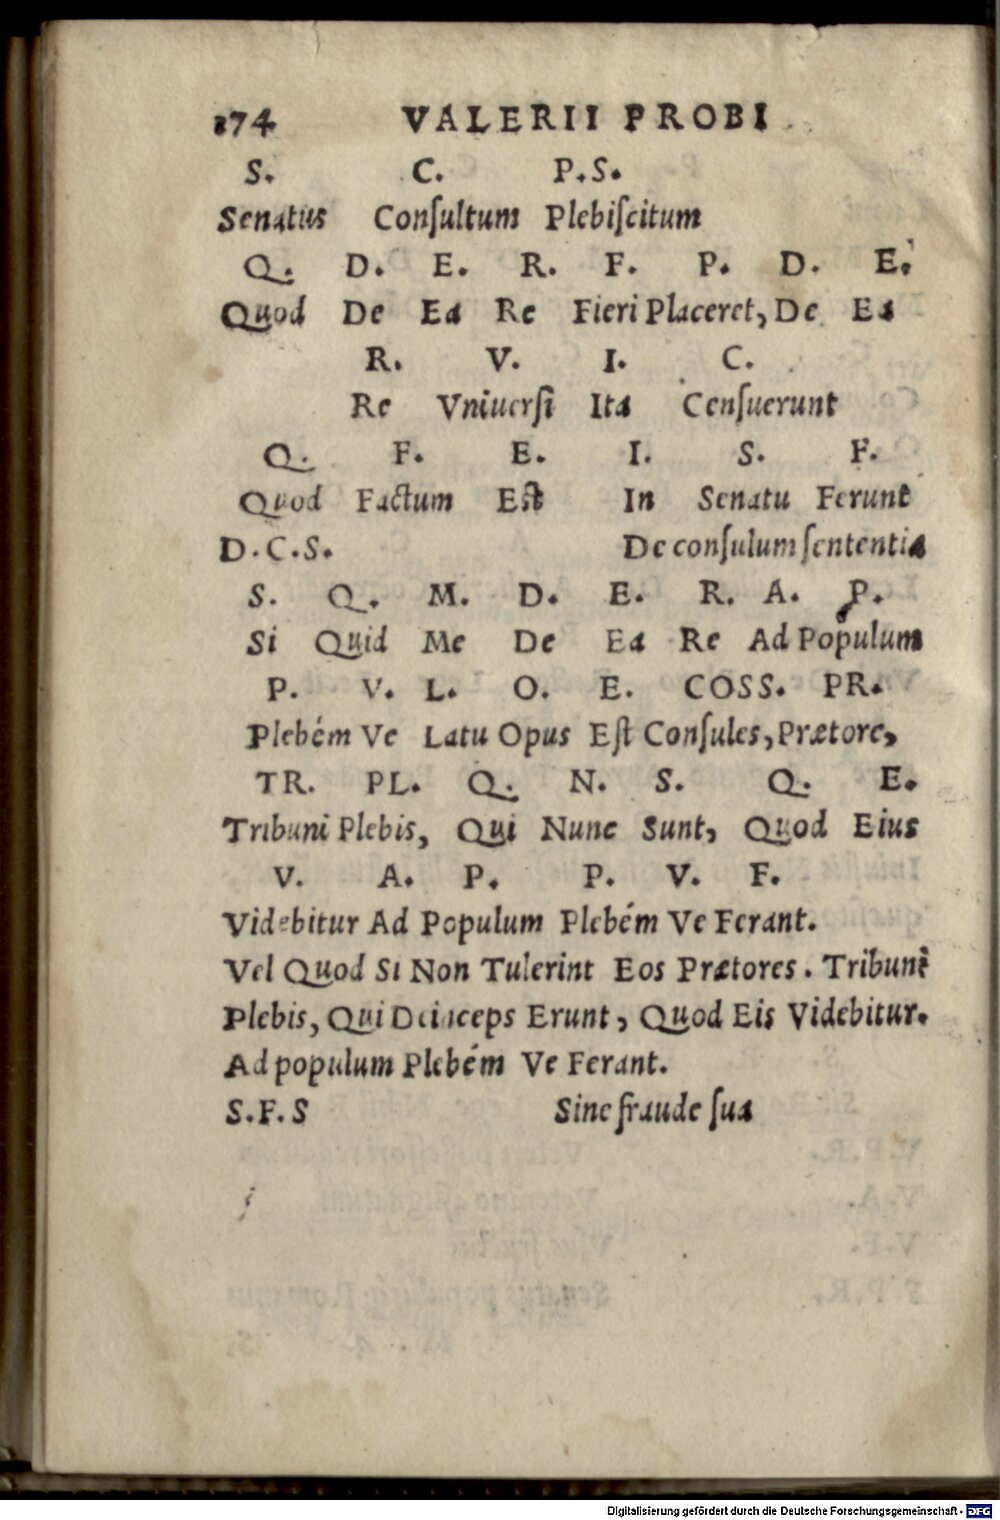 174 VALERII PROBI
S. C. P.S.
Senatus Conſultum Plebiſcitum
Q. D. E. R. F. P. D. E.
Quod De Ea Re Fieri Placeret, De Ea
R. V. I. C.
Re Vniuerſi Ita Cenſuerunt
Q. F. E. I. S. F.
Quod Factum Eſt In Senatu Ferunt
D.C.S. De conſulum ſententia
S. Q. M. D. E. R. A. P.
Si Quid Me De Ea Re Ad Populum
P. V. L. O. E. COSS. PR.
Plebém Ve Latu Opus Eſt Conſules, Prætore,
TR. PL. Q. N. S. Q. E.
Tribuni Plebis, Qui Nunc Sunt, Quod Eius
V. A. P. P. V. F.
Videbitur Ad Populum Plebém Ve Ferant.
Vel Quod Si Non Tulerint Eos Prætores. Tribuni
Plebis, Qui Deinceps Erunt, Quod Eis Videbitur.
Ad populum Plebém Ve Ferant.
S.F.S Sine fraude ſua
Digitalisierung gefördert durch die Deutsche Forschungsgemeinschaft - DFG